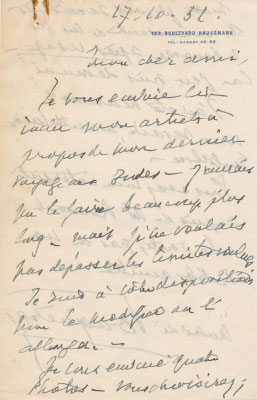 17-10-32.
102, BOULEVARD HAUSSMANN
TÉL:
Mon cher ami,
Je vous envoie ci-
inclus mon article à
propos de mon dernier
voyage aux Indes - J'aurais
pu le faire beaucoup plus
long - mais je ne voulais
pas dépasser les limites voulues
Je suis à votre disposition
pour le modifier ou l'
allonger. -
Je vous envoie quatre
photos - vous choisirez,